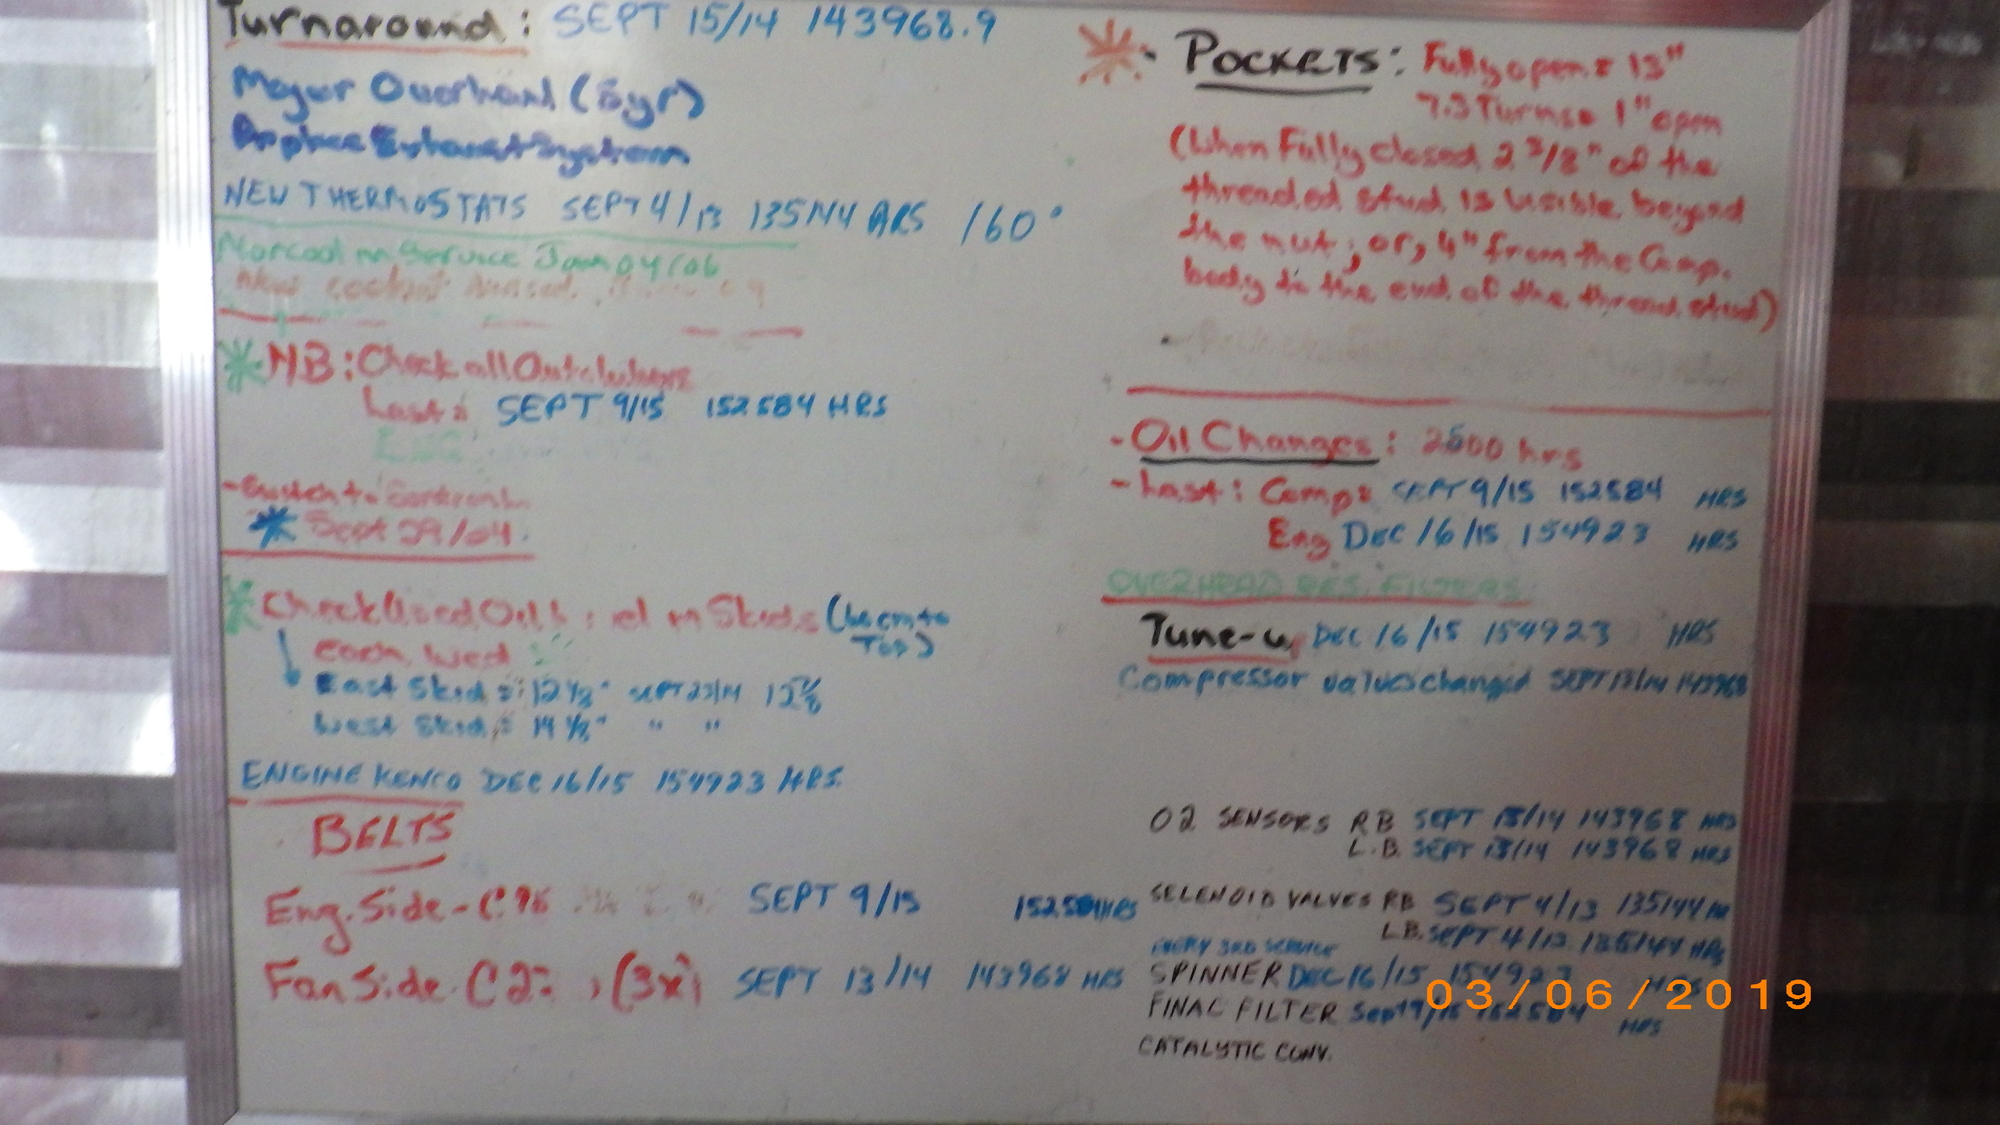 Turnaround: SEPT 15/14 143968.9
Major Overhaul (5yr)
Replace Exhaust System
NEW THERMOSTATS SEPT 4/13 135144 HRS 160°
Norcool in Service Jan 04/06
New coolant
*NB: Check all Autolubers
Last: SEPT 9/15 152584 HRS
- Switch to
* Sept 29/04.
* Check Used Oil : el in Skids (
Top)
Each Wed
East Skid = 12 1/2" SEPT 23/14 12
West Skid = 14 1/8" " "
ENGINE KENCO DEC 16/15 154923 HRS.
BELTS
Eng. Side - C 96 SEPT 9/15 152584 HRS
Fan Side - C (3x) SEPT 13/14 143968 HRS
* - POCKETS: Fully open = 13"
7.3 Turns = 1" open
(When Fully closed 2 3/8" of the
threaded stud is visible beyond
the nut; or, 4" from the Comp.
body to the end of the thread stud)
- Oil Changes: 2500 hrs
- Last: Comp: SEPT 9/15 152584 HRS
Eng DEC 16/15 154923 HRS
OVERHEAD RES. FILTERS
Tune-up DEC 16/15 154923 HRS
Compressor valves changed SEPT 13/14 143968
O2 SENSORS RB SEPT 13/14 143968 HRS
L.B. SEPT 13/14 143968 HRS
SELENOID VALVES RB SEPT 4/13 135144 HR
LB. SEPT 4/13 135144 HRS
EVERY 3RD SERVICE
SPINNER DEC 16/15 154923 HRS
FINAL FILTER Sept 9/15 152584 HRS
CATALYTIC CONV.
03/06/2019